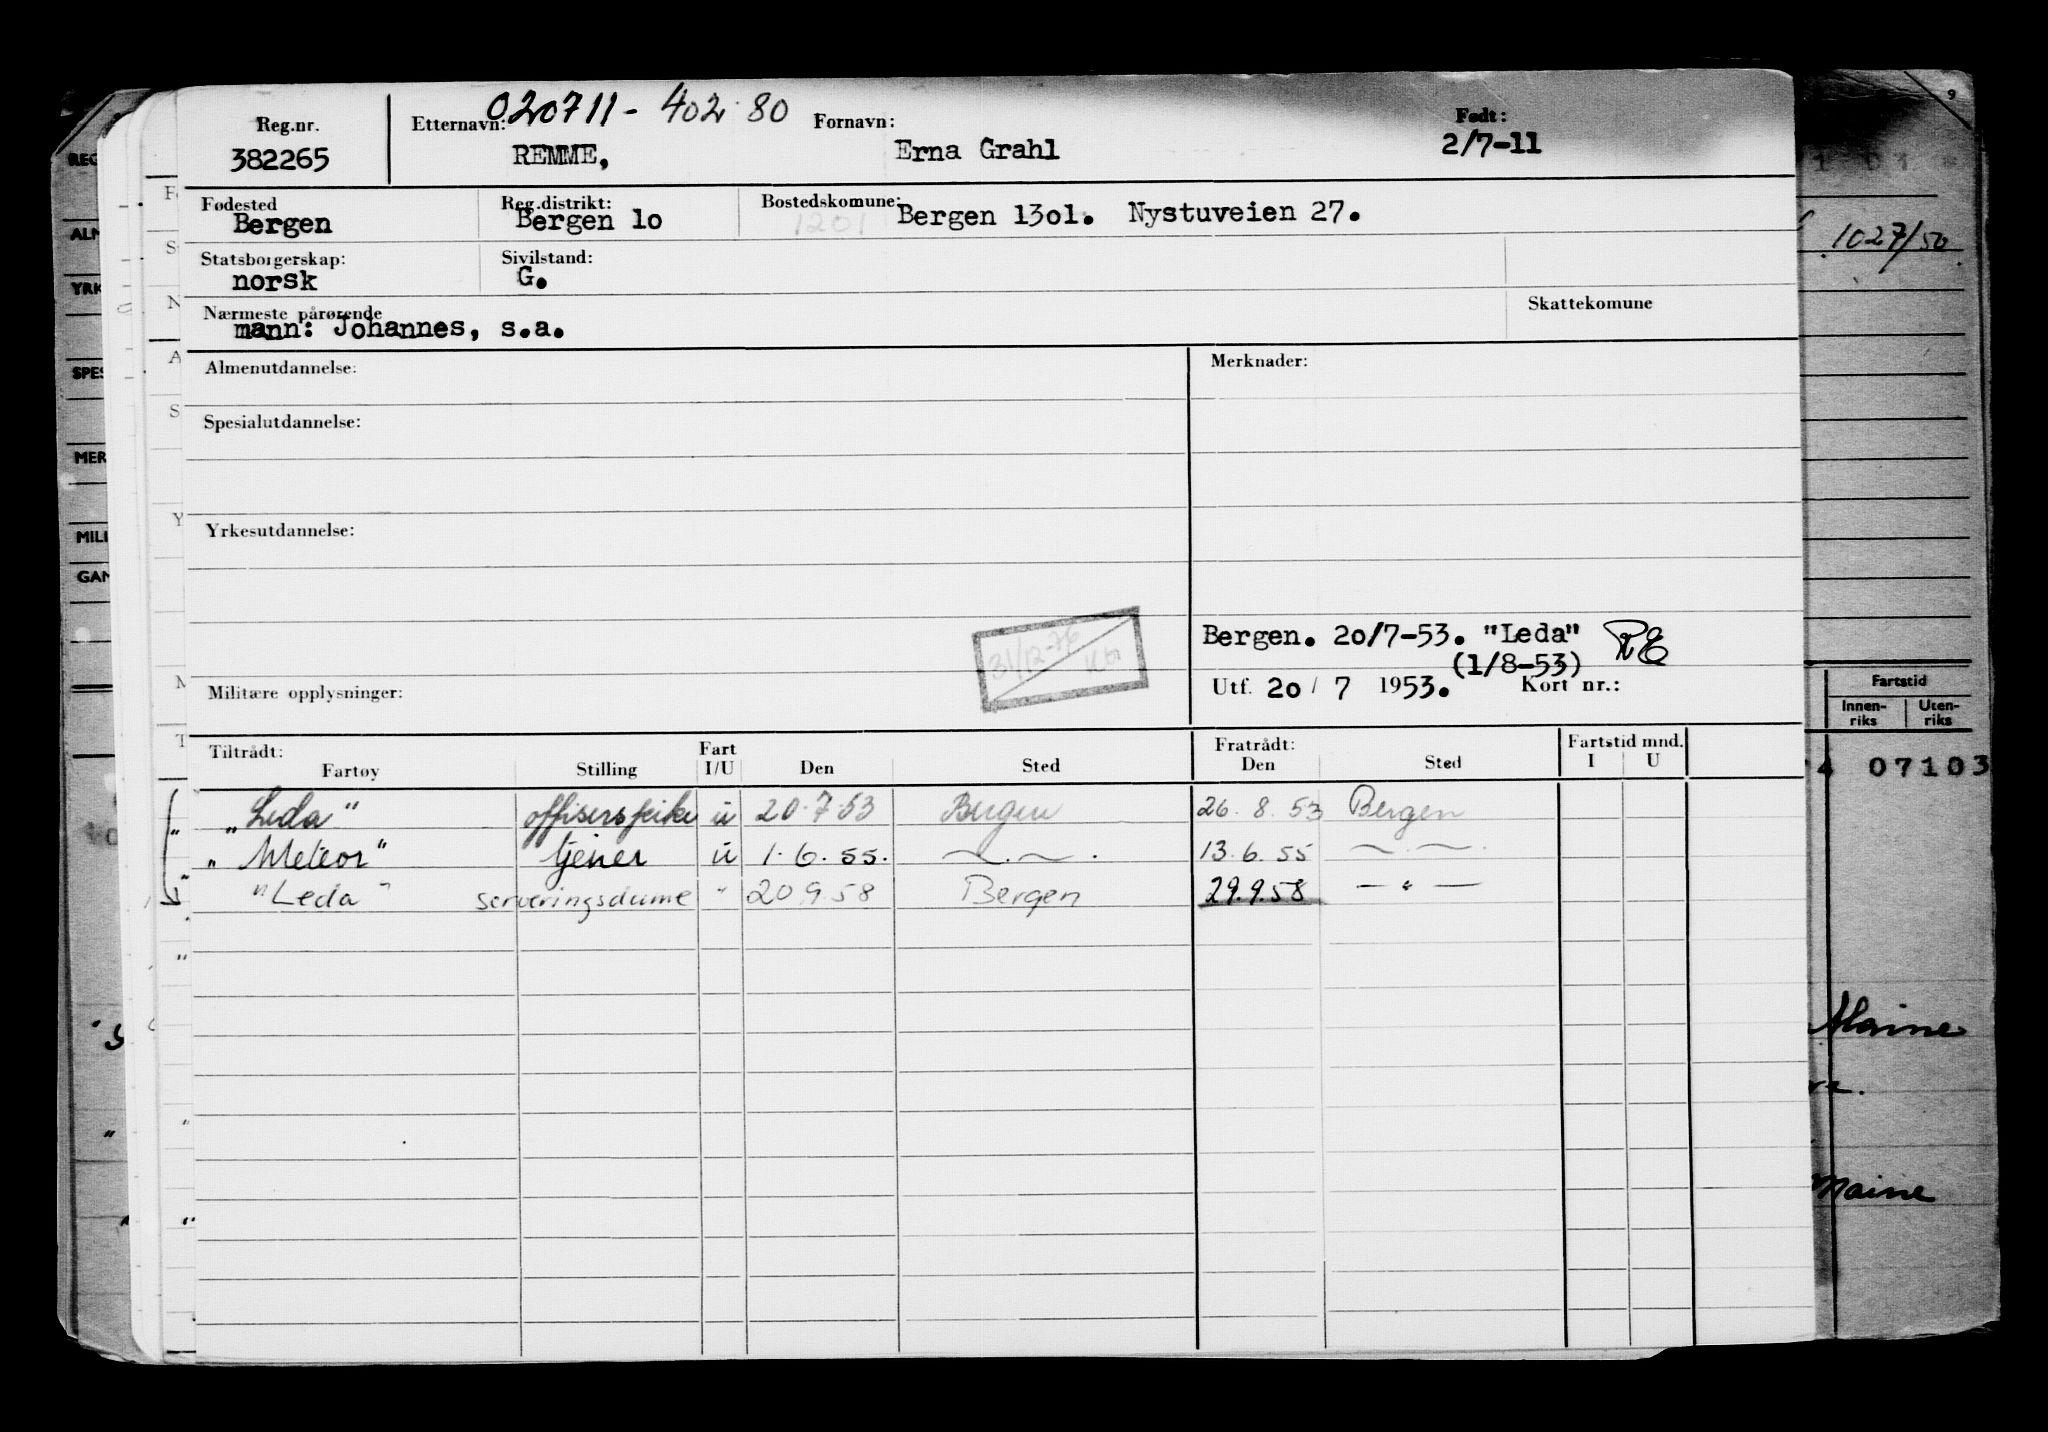 020711- 402 80
Reg.nr. Etternavn: Fornavn: Født:
382265 REMME, Erna Grahl 2/7-11
Fødested Reg.distrikt: Bostedskomune:
Bergen Bergen 1o 1201 Bergen 13o1. Nystuveien 27.
Statsborgerskap: Sivilstand:
norsk G.
Nærmeste pårørende Skattekomune
mann: Johannes, s.a.
Almenutdannelse: Merknader:
Spesialutdannelse:
Yrkesutdannelse:
31/12-76
Bergen. 2o/7-53. "Leda" RE
(1/8-53)
Militære opplysninger: Utf. 2o / 7 1953. Kort nr.:
Tiltrådt: Fart Fratrådt: Fartstid mnd.
Fartøy Stilling I/U Den Sted Den Sted I U
"Leda" offiserspike u 20.7.53 Bergen 26.8.53 Bergen
"Meteor" tjener u 1.6.55. —.—. 13.6.55 —.—.
"Leda" serveringsdame " 20 9 58 Bergen 29.9.58 — " —
REG
ALM
YRK
SPES
MER
MILI
GAN
9
1027/50
Fartstid
Innen-riks Uten-riks
07103
Maine
Maine